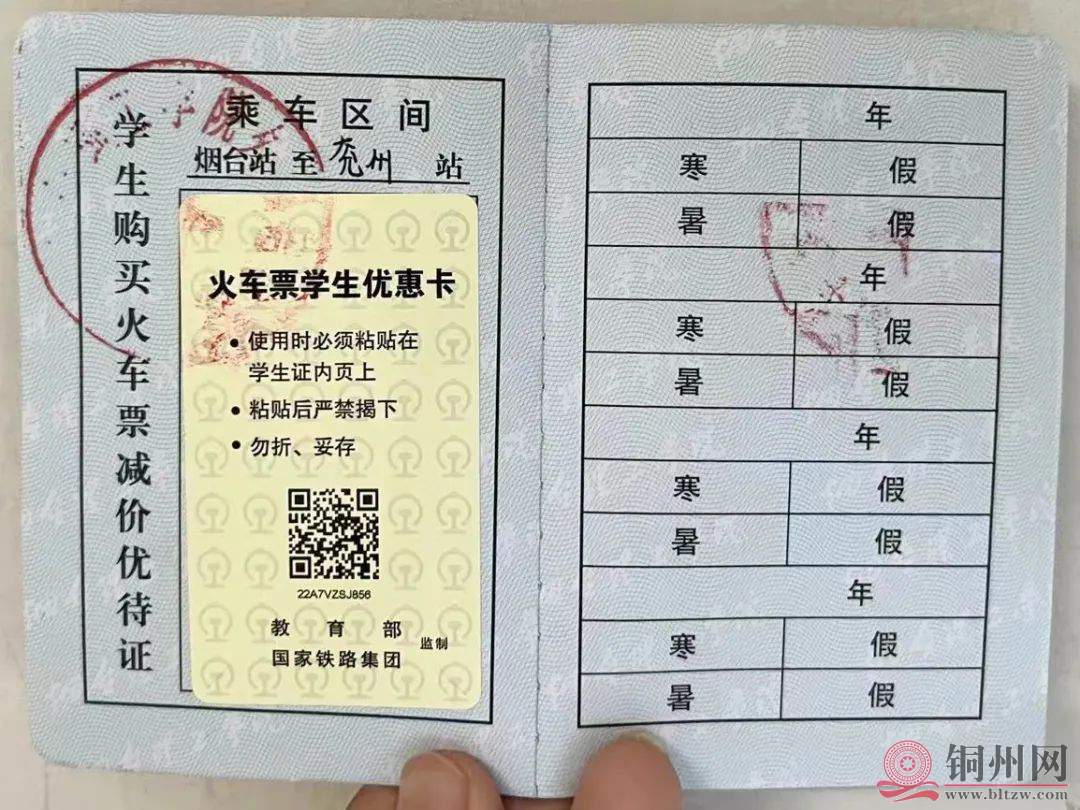 学生购买火车票减价优待证
乘车区间
烟台站 至 兖州 站
火车票学生优惠卡
• 使用时必须粘贴在
学生证内页上
• 粘贴后严禁揭下
• 勿折、妥存
22A7VZSJ856
教育部
国家铁路集团
监制
年
寒 假
暑 假
年
寒 假
暑 假
年
寒 假
暑 假
年
寒 假
暑 假
铜州网
www.bltzw.com